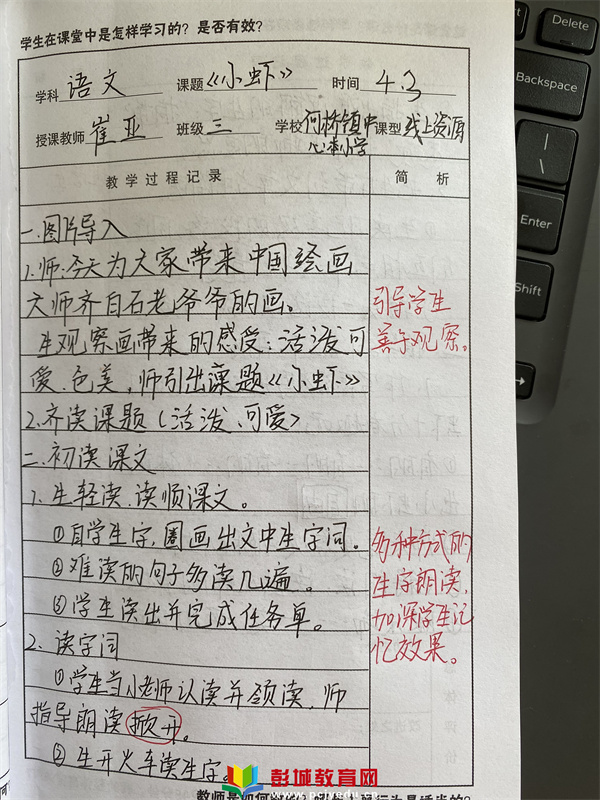 学生在课堂中是怎样学习的？是否有效？
学科 语文 课题 《小虾》 时间 4.3
授课教师 崔亚 班级 三 学校 何桥镇中心小学 课型 线上资源
教学过程记录 简析
一.图片导入
1.师:今天为大家带来中国绘画
大师齐白石老爷爷的画。
引导学生
生观察画带来的感受:活泼可
善于观察。
爱.色美,师引出课题《小虾》
2.齐读课题(活泼、可爱)
二.初读课文
1.生轻读.读顺课文。
①自学生字,圈画出文中生字词。
多种方式的
②难读的句子多读几遍。
生字朗读,
③学生读出并完成任务单。
加深学生记
2.读字词
忆效果。
①学生当小老师认读并领读.师
指导朗读掀开。
②生开火车读生字。
彭城教育网
Delete
Backspace
Enter
Shift